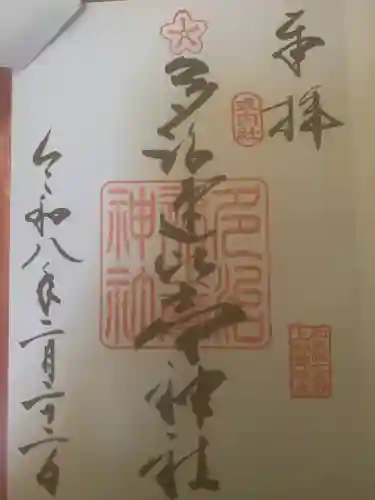 奉拝
式内社
多治速比売神社
多治
速比売
神社
令和八年二月二十二日